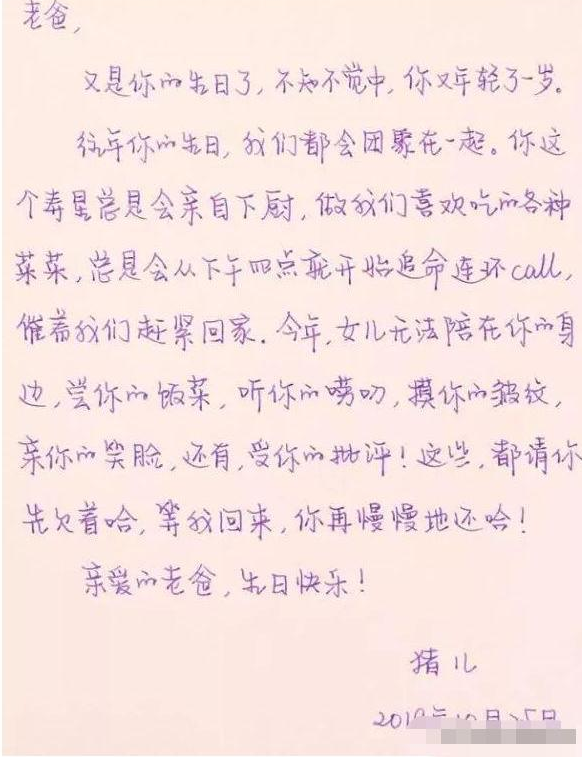 老爸,
又是你的生日了,不知不觉中,你又年轻了一岁。
往年你的生日,我们都会团聚在一起。你这
个寿星总是会亲自下厨,做我们喜欢吃的各种
菜菜,总是会从下午四点就开始追命连环call,
催着我们赶紧回家.今年,女儿无法陪在你的身
边,尝你的饭菜,听你的唠叨,摸你的皱纹,
亲你的笑脸,还有,受你的批评!这些,都请你
先欠着哈,等我回来,你再慢慢地还哈!
亲爱的老爸,生日快乐!
猪儿